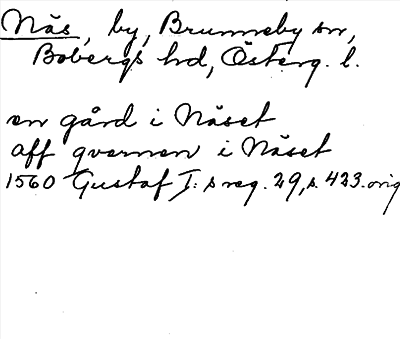 Näs, by, Brunneby sn,
Bobergs hd, Österg. l.
en gård i Näset
aff qvernen i Näset
1560 Gustaf I:s reg. 29, s. 423. orig